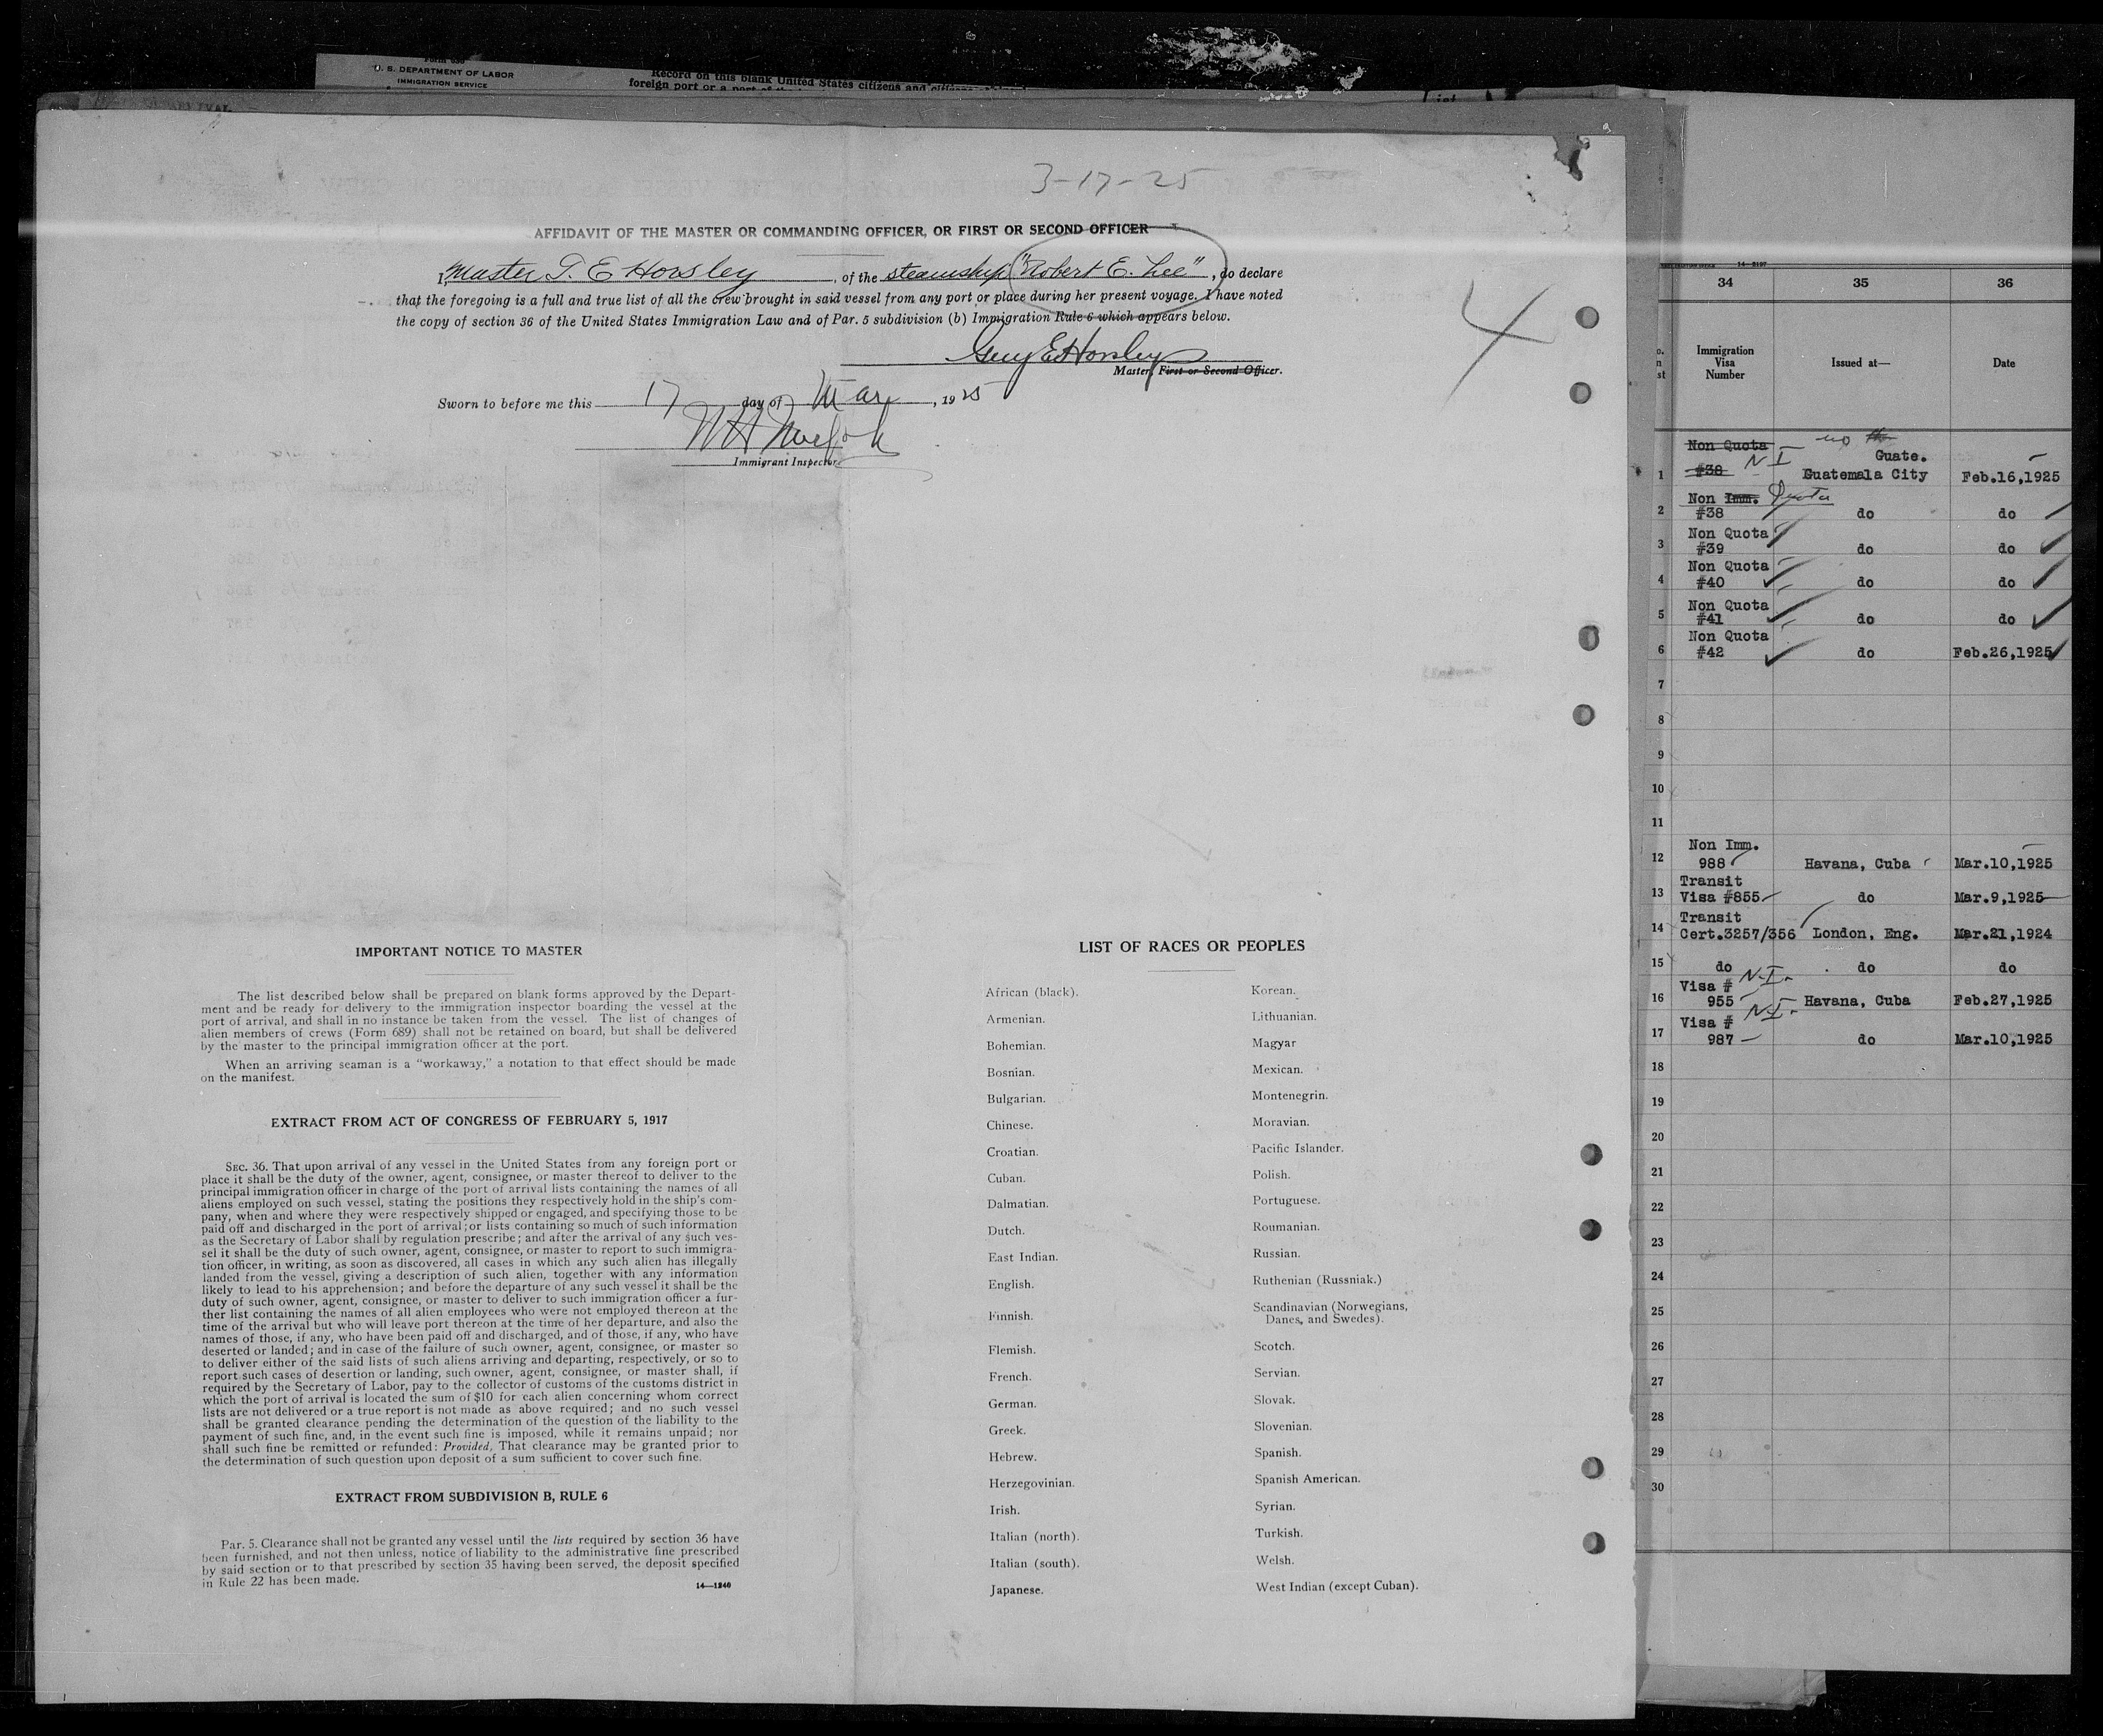 U. S. DEPARTMENT OF LABOR
IMMIGRATION SERVICE
Record on this blank United States citizens and
3-17-25
AFFIDAVIT OF THE MASTER OR COMMANDING OFFICER, OR FIRST OR SECOND OFFICER
I, Master G. E Horsley, of the steamship "Robert E. Lee", do declare
that the foregoing is a full and true list of all the crew brought in said vessel from any port or place during her present voyage. I have noted
the copy of section 36 of the United States Immigration Law and of Par. 5 subdivision (b) Immigration Rule 6 which appears below.
Guy E Horsley
Master, First or Second Officer.
Sworn to before me this 17 day of Mar, 1925
Immigrant Inspector.
4
IMPORTANT NOTICE TO MASTER
The list described below shall be prepared on blank forms approved by the Depart-
ment and be ready for delivery to the immigration inspector boarding the vessel at the
port of arrival, and shall in no instance be taken from the vessel. The list of changes of
alien members of crews (Form 689) shall not be retained on board, but shall be delivered
by the master to the principal immigration officer at the port.
When an arriving seaman is a "workaway," a notation to that effect should be made
on the manifest.
EXTRACT FROM ACT OF CONGRESS OF FEBRUARY 5, 1917
SEC. 36. That upon arrival of any vessel in the United States from any foreign port or
place it shall be the duty of the owner, agent, consignee, or master thereof to deliver to the
principal immigration officer in charge of the port of arrival lists containing the names of all
aliens employed on such vessel, stating the positions they respectively hold in the ship's com-
pany, when and where they were respectively shipped or engaged, and specifying those to be
paid off and discharged in the port of arrival; or lists containing so much of such information
as the Secretary of Labor shall by regulation prescribe; and after the arrival of any such ves-
sel it shall be the duty of such owner, agent, consignee, or master to report to such immigra-
tion officer, in writing, as soon as discovered, all cases in which any such alien has illegally
landed from the vessel, giving a description of such alien, together with any information
likely to lead to his apprehension; and before the departure of any such vessel it shall be the
duty of such owner, agent, consignee, or master to deliver to such immigration officer a fur-
ther list containing the names of all alien employees who were not employed thereon at the
time of the arrival but who will leave port thereon at the time of her departure, and also the
names of those, if any, who have been paid off and discharged, and of those, if any, who have
deserted or landed; and in case of the failure of such owner, agent, consignee, or master so
to deliver either of the said lists of such aliens arriving and departing, respectively, or so to
report such cases of desertion or landing, such owner, agent, consignee, or master shall, if
required by the Secretary of Labor, pay to the collector of customs of the customs district in
which the port of arrival is located the sum of $10 for each alien concerning whom correct
lists are not delivered or a true report is not made as above required; and no such vessel
shall be granted clearance pending the determination of the question of the liability to the
payment of such fine, and, in the event such fine is imposed, while it remains unpaid; nor
shall such fine be remitted or refunded: Provided, That clearance may be granted prior to
the determination of such question upon deposit of a sum sufficient to cover such fine.
EXTRACT FROM SUBDIVISION B, RULE 6
Par. 5. Clearance shall not be granted any vessel until the lists required by section 36 have
been furnished, and not then unless, notice of liability to the administrative fine prescribed
by said section or to that prescribed by section 35 having been served, the deposit specified
in Rule 22 has been made.
14—1240
LIST OF RACES OR PEOPLES
African (black).
Armenian.
Bohemian.
Bosnian.
Bulgarian.
Chinese.
Croatian.
Cuban.
Dalmatian.
Dutch.
East Indian.
English.
Finnish.
Flemish.
French.
German.
Greek.
Hebrew.
Herzegovinian.
Irish.
Italian (north).
Italian (south).
Japanese.
Korean.
Lithuanian.
Magyar
Mexican.
Montenegrin.
Moravian.
Pacific Islander.
Polish.
Portuguese.
Roumanian.
Russian.
Ruthenian (Russniak.)
Scandinavian (Norwegians,
Danes, and Swedes).
Scotch.
Servian.
Slovak.
Slovenian.
Spanish.
Spanish American.
Syrian.
Turkish.
Welsh.
West Indian (except Cuban).
34 35 36
Immigration Visa Number Issued at— Date
Non Quota Guate.
1 #38 N I Guatemala City Feb.16,1925
Non Imm. Quota
2 #38 do do
Non Quota
3 #39 do do
Non Quota
4 #40 do do
Non Quota
5 #41 do do
Non Quota
6 #42 do Feb.26,1925
7
8
9
10
11
Non Imm.
12 988 Havana, Cuba Mar.10,1925
Transit
13 Visa #855 do Mar.9,1925
Transit
14 Cert.3257/356 London, Eng. Mar.21,1924
15 do do do
Visa # N-I-
16 955 Havana, Cuba Feb.27,1925
Visa # N-I-
17 987 do Mar.10,1925
18
19
20
21
22
23
24
25
26
27
28
29
30